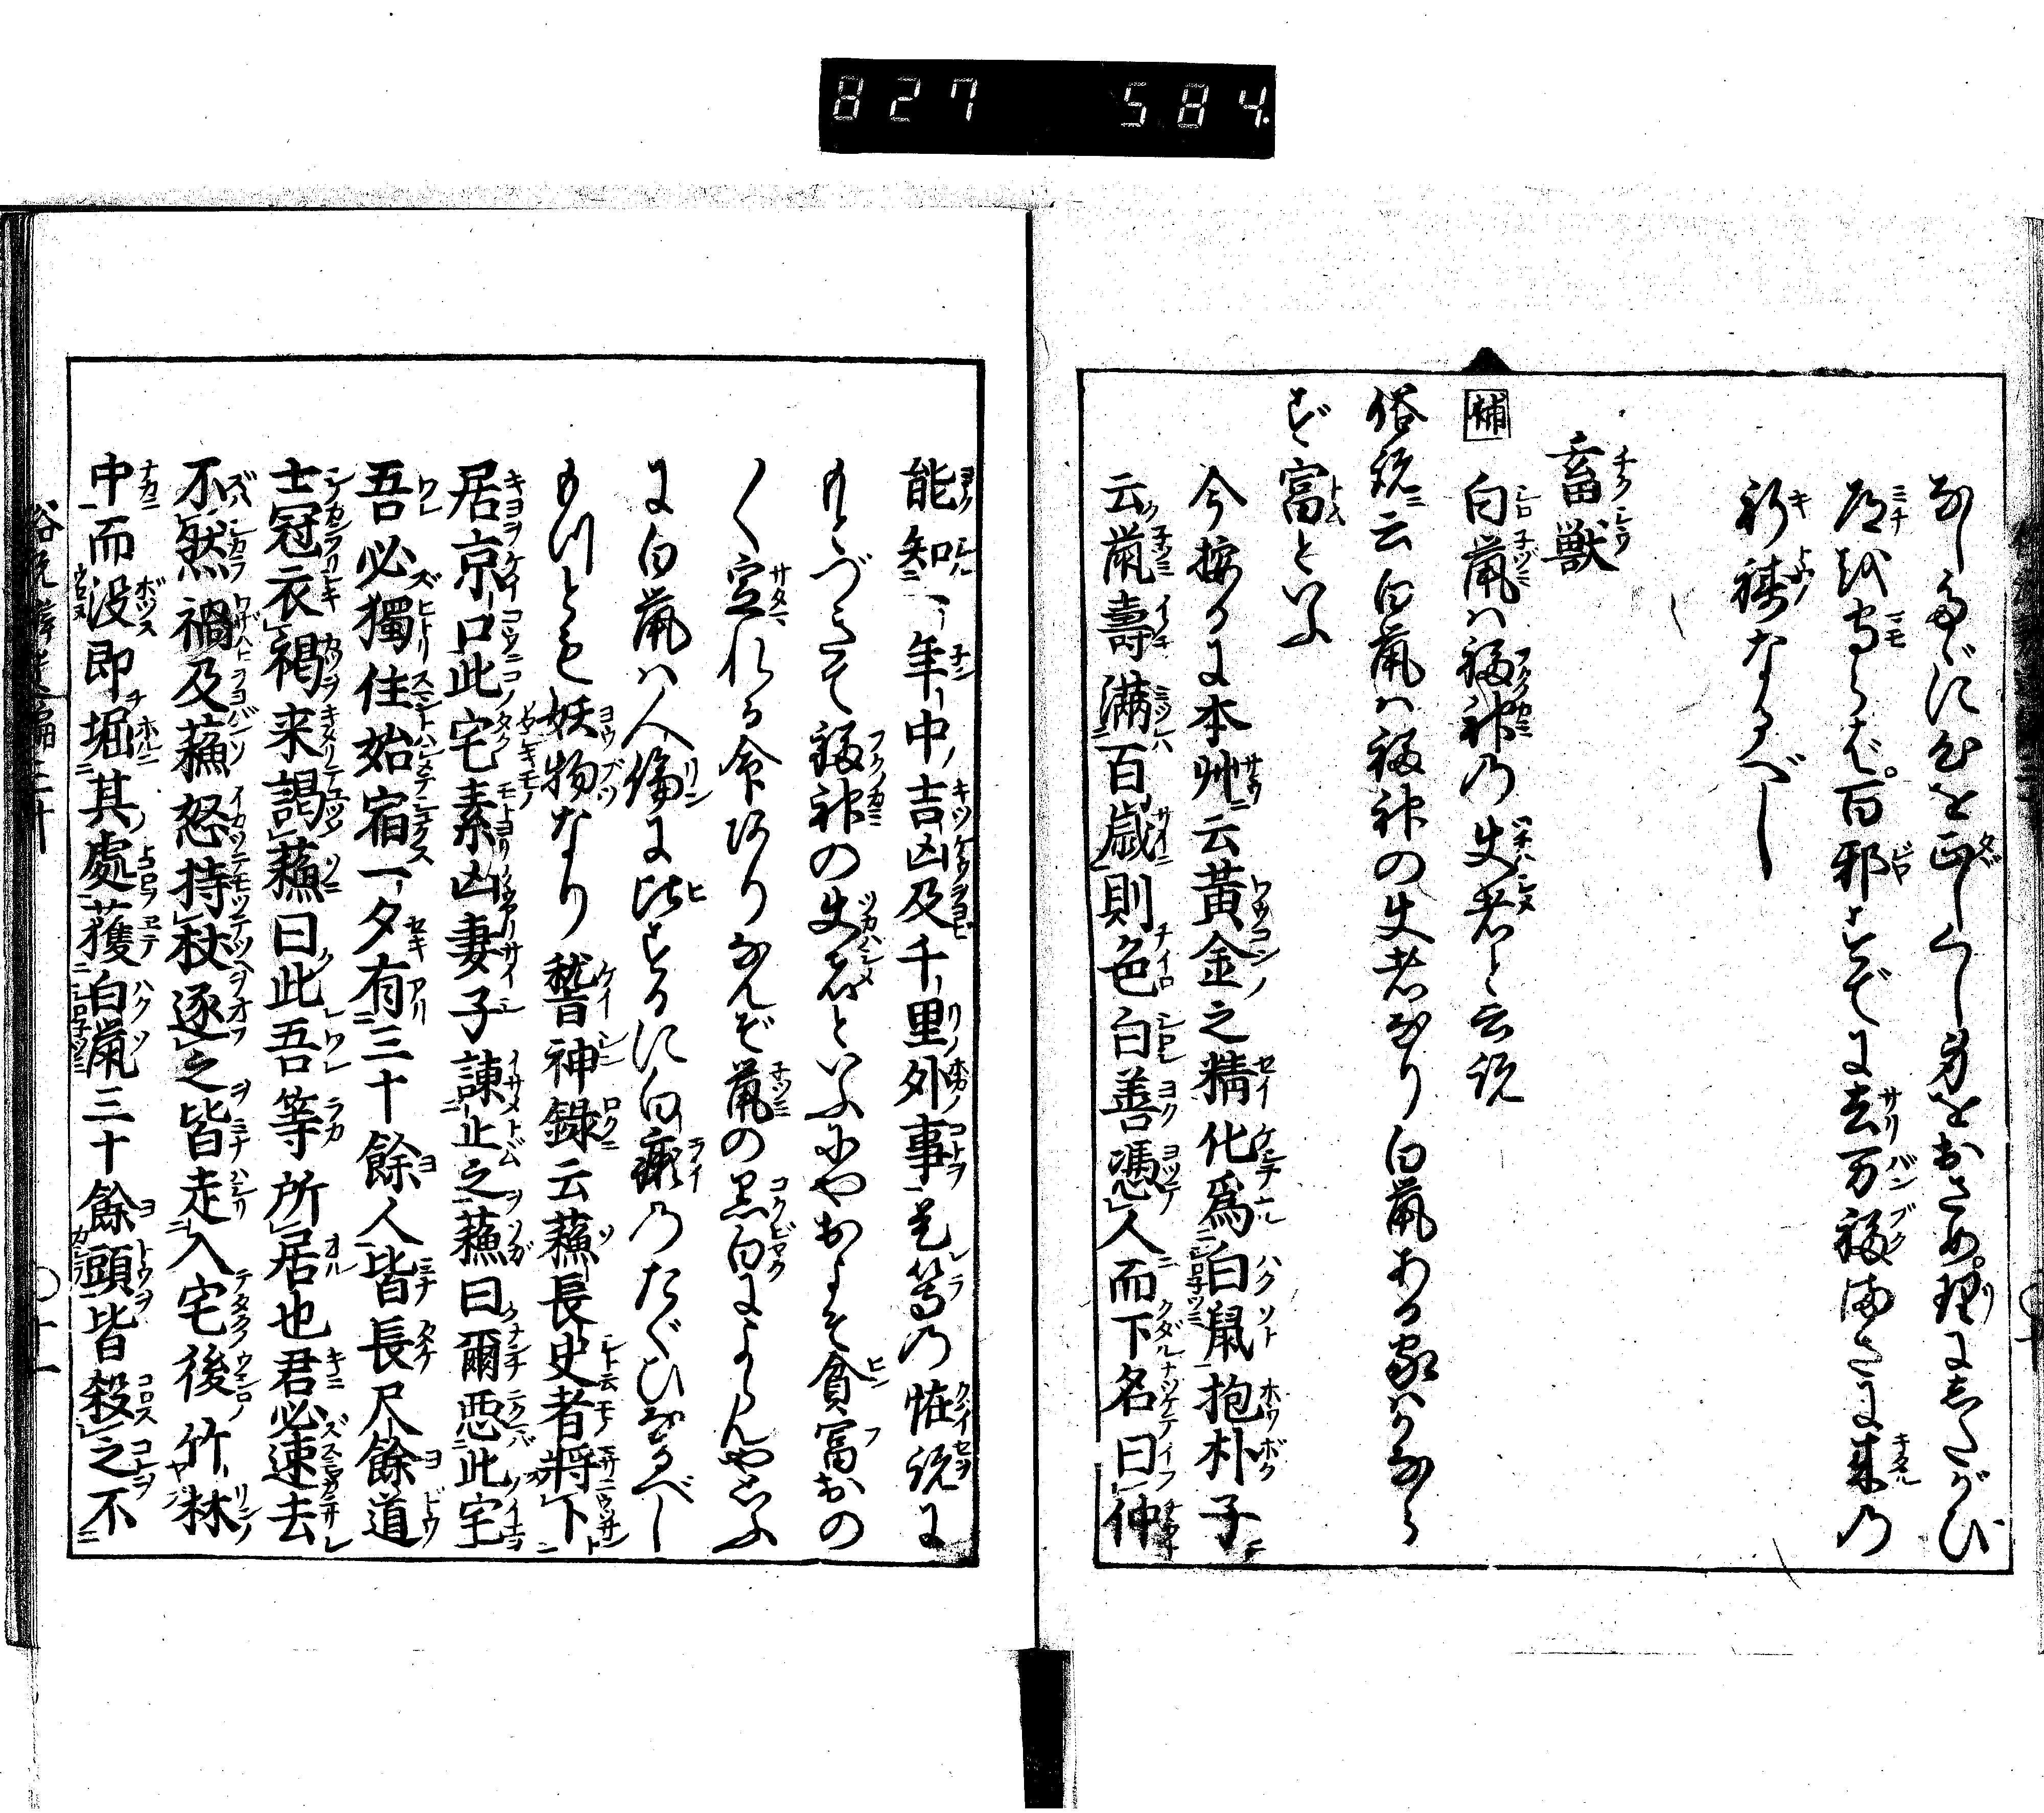 827 584.
なし多だに心を正しくし身をおさめ。理にしたがひ
道以守らば。百邪すでに去万福まさに来の
祈祷なるべし
畜獣
補 白鼠ハ福神の使者と云説
俗説ニ云白鼠ハ福神の使者なり白鼠ある家ハかなら
ず富といふ
今按るに本艸ニ云黄金之精化爲白鼠抱朴子
云鼠壽滿百歳則色白善憑人而下名曰仲
能知一年中吉凶及千里外事是等の怪説に
もとづきて福神の使者といふにやおよそ貧富おの
〱定れる命ありなんぞ鼠の黒白によらんやこゝ
に白鼠ハ人倫に比するに白癩のたぐひなるべし
もけとも妖物なり稽神録云蘓長史者將下
居京口此宅素凶妻子諫止之蘓曰爾悪此宅
吾必獨住始宿一夕有三十餘人皆長尺餘道
士冠衣褐来謁蘓曰此吾等所居也君必速去
不然禍及蘓怒持杖逐之皆走入宅後竹林
中而没即堀其處獲白鼠三十餘頭皆殺之不